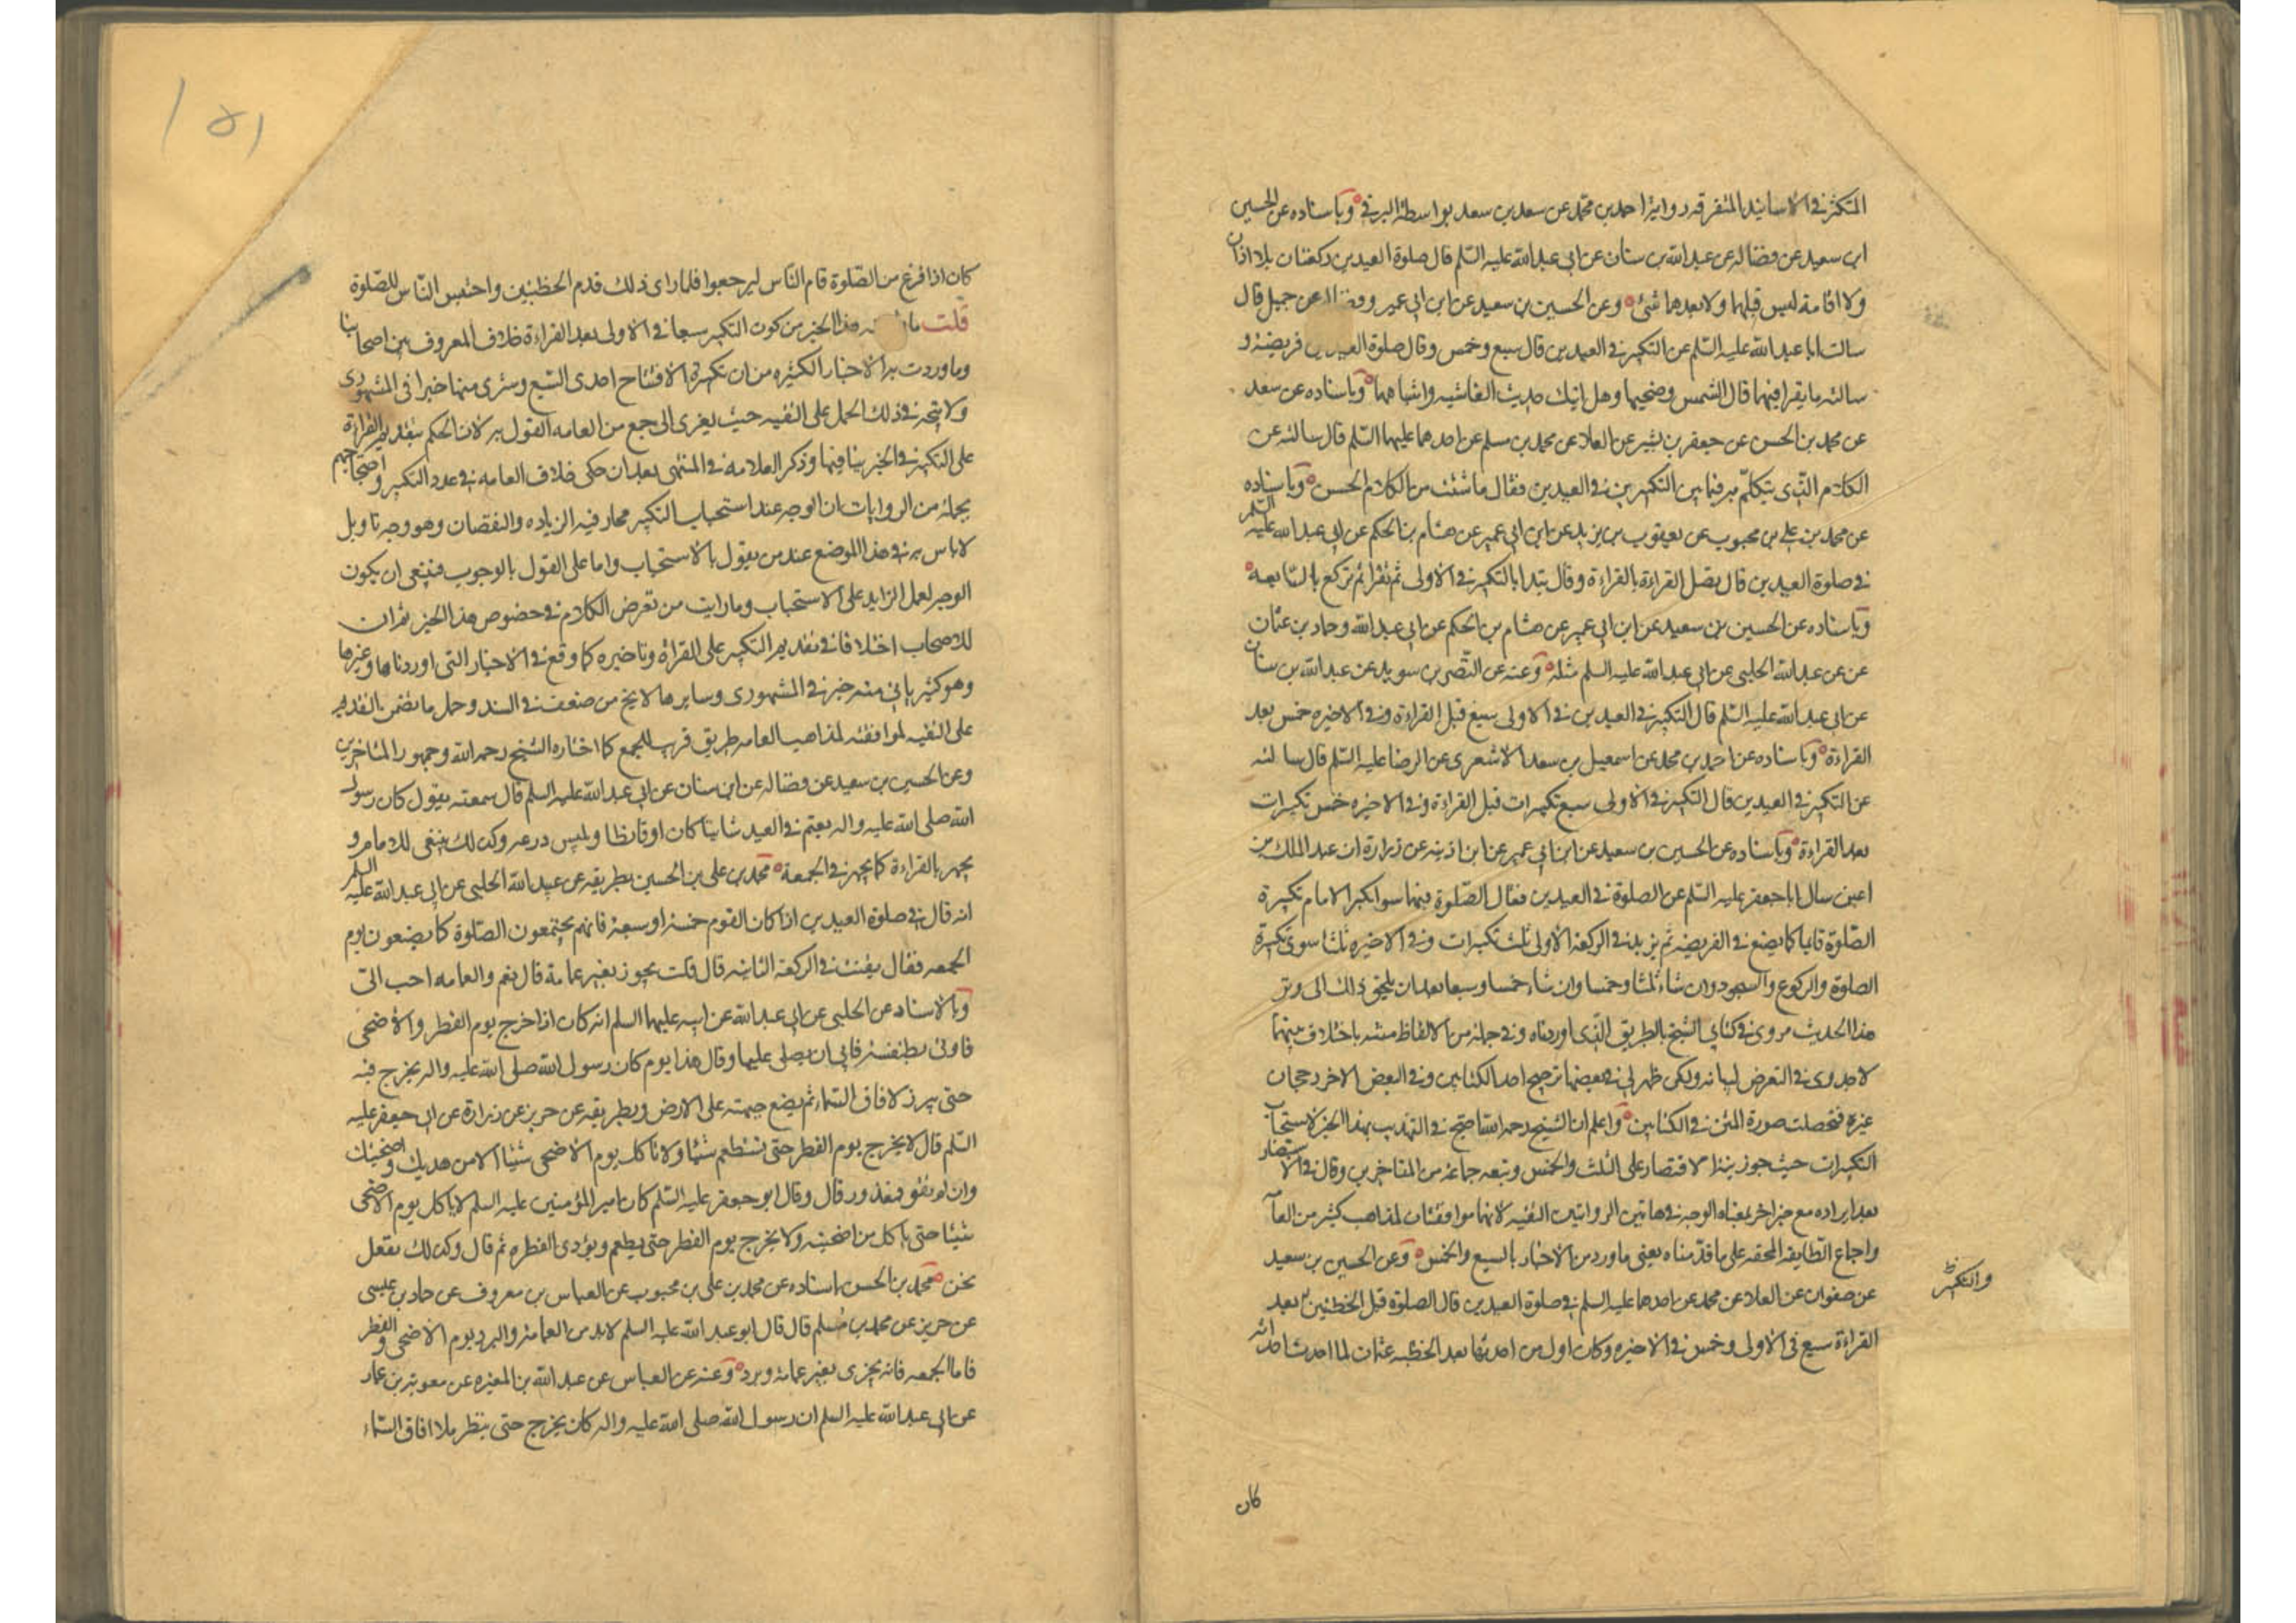 المتكثر في الاسانيد المتفرقه رواية احمد بن محمد عن سعد بن سعد بواسطة البرقي وباسناده عن الحسين
ابن سعيد عن فضاله عن عبد الله بن سنان عن ابي عبد الله عليه السلم قال صلوة العيدين ركعتان بلا اذان
ولا اقامة ليس قبلهما ولا بعدهما شئ وعن الحسين بن سعيد عن ابن ابي عمير وفضاله عن جميل قال
سالت ابا عبد الله عليه السلم عن التكبير في العيدين قال سبع وخمس وقال صلوة العيدين فريضة و
سالته ما يقرا فيهما قال الشمس وضحيها وهل اتيك حديث الغاشيه واشباهها وباسناده عن سعد
عن محمد بن الحسن عن جعفر بن بشير عن العلا عن محمد بن مسلم عن احدهما عليهما السلم قال سالته عن
الكلام الذي يتكلم به فيما بين التكبيرتين في العيدين فقال ما شئت من الكلام الحسن وباسناده
عن محمد بن علي بن محبوب عن يعقوب بن يزيد عن ابن ابي عمير عن هشام بن الحكم عن ابي عبد الله عليه السلم
في صلوة العيدين قال يصل القراءة بالقراءة وقال يبتدا بالتكبير في الاولى ثم يقرا ثم يركع بالسابعة
وباسناده عن الحسين بن سعيد عن ابن ابي عمير عن هشام بن الحكم عن ابي عبد الله وحماد بن عثمان
عن عن عبد الله الحلبي عن ابي عبد الله عليه السلم مثله وعنه عن النضر بن سويد عن عبد الله بن سنان
عن ابي عبد الله عليه السلم قال التكبير في العيدين في الاولى سبع قبل القراءة وفي الاخيره خمس بعد
القراءة وباسناده عن احمد بن محمد عن اسمعيل بن سعد الاشعري عن الرضا عليه السلم قال سالته
عن التكبير في العيدين قال التكبير في الاولى سبع تكبيرات قبل القراءة وفي الاخيره خمس تكبيرات
بعد القراءة وباسناده عن الحسين بن سعيد عن ابن ابي عمير عن ابن اذينه عن زرارة ان عبد الملك بن
اعين سال ابا جعفر عليه السلم عن الصلوة في العيدين فقال الصلوة فيهما سوا يكبر الامام تكبيرة
الصلوة قايما كما يصنع في الفريضه ثم يزيد في الركعة الاولى ثلث تكبيرات وفي الاخيره ثلثا سوى تكبيرة
الصلوة والركوع والسجود وان شاء ثلثا وخمسا وان شاء خمسا وسبعا بعد ان يلحق ذلك الى وتر
هذا الحديث مروي في كتابي الشيخ بالطريق الذي اوردناه وفي جملة من الالفاظ متنه باختلاف بينهما
لا جدوى في التعرض لبيانه ولكن ظهر لي في بعضها ترجيح احد الكتابين وفي البعض الاخر رجحان
غيره فتحصلت صورة المتن في الكتابين واعلم ان الشيخ رحمه الله احتج في التهذيب بهذا الخبر لاستحباب
التكبيرات حيث جوز فيه الاقتصار على الثلث والخمس وتبعه جماعة من المتاخرين وقال في الاستبصار
بعد ايراده مع خبر اخر بمعناه الوجه في هاتين الروايتين التقيه لانهما موافقتان لمذاهب كثير من العامة
واجماع الطايفه المحقه على ما قدمناه يعني ما ورد من الاخبار بالسبع والخمس وعن الحسين بن سعيد
عن صفوان عن العلا عن محمد عن احدهما عليه السلم في صلوة العيدين قال الصلوة قبل الخطبتين بعد
والتكبير
القراءة سبع في الاولى وخمس في الاخيره وكان اول من احدثها بعد الخطبه عثمان لما احدث احداثه
كان
١٥١
كان اذا فرغ من الصلوة قام الناس ليرجعوا فلما راى ذلك قدم الخطبتين واحتبس الناس للصلوة
قلت ما هذا الخبر من كون التكبير سبعا في الاولى بعد القراءة خلاف المعروف بين اصحابنا
وما وردت به الاخبار الكثيره من ان تكبيرة الافتتاح احدى السبع وسترى منها خبرا في المشهوري
ولا يتجه في ذلك الحمل على التقيه حيث يعزى الى جمع من العامه القول به لان الحكم بتقديم القراءة
على التكبير في الخبر ينافيها وذكر العلامه في المنتهى بعد ان حكى خلاف العامه في عدد التكبير واحتجاجهم
بجملة من الروايات ان الوجه عند استحباب التكبير محار فيه الزياده والنقصان وهو وجه تاويل
لا باس به في هذا الموضع عند من يقول بالاستحباب واما على القول بالوجوب فينبغي ان يكون
الوجه لعمل الزايد على الاستحباب وما رايت من تعرض الكلام في خصوص هذا الخبر ثم ان
للاصحاب اختلافا في تقديم التكبير على القراة وتاخيره كما وقع في الاخبار التي اوردناها وغيرها
وهو كثير ياتي منه خبر في المشهوري وسايرها لا يخ من ضعف في السند وحمل ما تضمن التقديم
على التقيه لموافقته لمذاهب العامه طريق قريب للجمع كما اختاره الشيخ رحمه الله وجمهور المتاخرين
وعن الحسين بن سعيد عن فضاله عن ابن سنان عن ابي عبد الله عليه السلم قال سمعته يقول كان رسول
الله صلى الله عليه واله يعتم في العيد شاتيا كان او قايظا ويلبس درعه وكذلك ينبغي للامام و
يجهر بالقراءة كما يجهر في الجمعة محمد بن علي بن الحسين بطريقه عن عبيد الله الحلبي عن ابي عبد الله عليه السلم
انه قال في صلوة العيدين اذا كان القوم خمسة او سبعة فانهم يجتمعون الصلوة كما يصنعون يوم
الجمعه فقال يقنت في الركعة الثانيه قال قلت يجوز بغير عمامة قال نعم والعمامه احب الي
وبالاسناد عن الحلبي عن ابي عبد الله عن ابيه عليهما السلم انه كان اذا خرج يوم الفطر والاضحى
فاوتي بطنفسة فابى ان يصلي عليها وقال هذا يوم كان رسول الله صلى الله عليه واله يخرج فيه
حتى يبرز لافاق السماء ثم يضع جبهته على الارض وبطريقه عن حريز عن زرارة عن ابي جعفر عليه
السلم قال لا يخرج يوم الفطر حتى تستطعم شيئا ولا تاكل يوم الاضحى شيئا الا من هديك واضحيتك
وان لم تقو فمعذور قال وقال ابو جعفر عليه السلم كان امير المؤمنين عليه السلم لا ياكل يوم الاضحى
شيئا حتى ياكل من اضحيته ولا يخرج يوم الفطر حتى يطعم ويؤدي الفطره ثم قال وكذلك نفعل
نحن محمد بن الحسن باسناده عن محمد بن علي بن محبوب عن العباس بن معروف عن حماد بن عيسى
عن حريز عن محمد بن مسلم قال قال ابو عبد الله عليه السلم لابد من العمامة والبرد يوم الاضحى والفطر
فاما الجمعه فانه يجزى بغير عمامة وبرد وعنه عن العباس عن عبد الله بن المغيره عن معوية بن عمار
عن ابي عبد الله عليه السلم ان رسول الله صلى الله عليه واله كان يخرج حتى ينظر الى افاق السماء